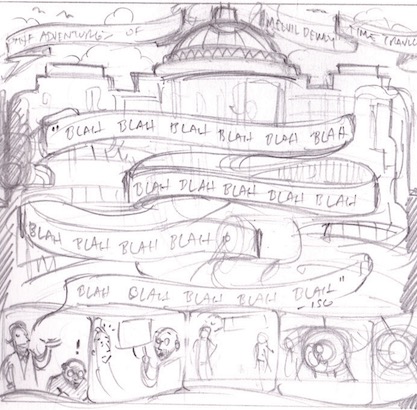 THE ADVENTURES OF MELVIL DEWEY TIME TRAVELL
"BLAH BLAH BLAH BLAH BLAH BLAH
BLAH BLAH BLAH BLAH BLAH BLAH
BLAH BLAH BLAH BLAH
BLAH BLAH BLAH BLAH BLAH BLAH"